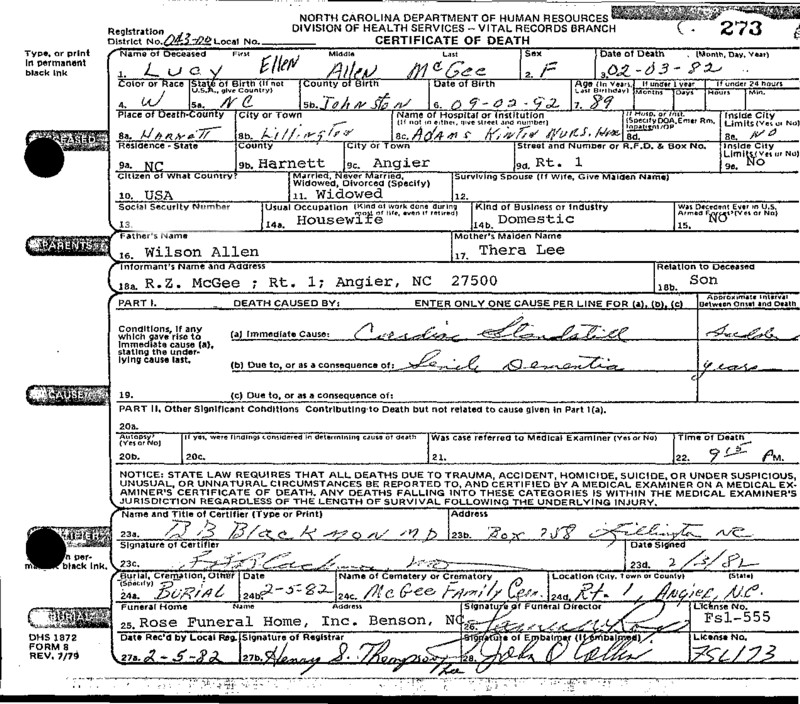 NORTH CAROLINA DEPARTMENT OF HUMAN RESOURCES
DIVISION OF HEALTH SERVICES – VITAL RECORDS BRANCH
CERTIFICATE OF DEATH
273
Registration
District No. 043-00 Local No.
Type, or print
in permanent
black ink
Name of Deceased First Middle Last Sex Date of Death (Month, Day, Year)
1. Lucy Ellen Allen McGee 2. F 3. 02-03-82
Color or Race State of Birth (If not U.S.A., give Country) County of Birth Date of Birth Age (In Years, Last Birthday) If under 1 year Months Days If under 24 hours Hours Min.
4. W 5a. NC 5b. Johnston 6. 09-02-92 7. 89
Place of Death-County City or Town Name of Hospital or Institution (If not in either, give street and number) If Hosp. or Inst. (Specify DOA, Emer Rm, Inpatient/OP Inside City Limits (Yes or No)
8a. Harnett 8b. Lillington 8c. Adams Nurs. 8d. 8e. No
Residence - State County City or Town Street and Number or R.F.D. & Box No. Inside City Limits (Yes or No)
9a. NC 9b. Harnett 9c. Angier 9d. Rt. 1 9e. No
Citizen of What Country? Married, Never Married, Widowed, Divorced (Specify) Surviving Spouse (If Wife, Give Maiden Name)
10. USA 11. Widowed 12.
Social Security Number Usual Occupation (Kind of work done during most of life, even if retired) Kind of Business or Industry Was Decedent Ever in U.S. Armed Forces? (Yes or No)
13. 14a. Housewife 14b. Domestic 15. NO
PARENTS
Father's Name Mother's Maiden Name
16. Wilson Allen 17. Thera Lee
Informant's Name and Address Relation to Deceased
18a. R.Z. McGee ; Rt. 1; Angier, NC 27500 18b. Son
PART I. DEATH CAUSED BY: ENTER ONLY ONE CAUSE PER LINE FOR (a), (b), (c) Approximate Interval Between Onset and Death
Conditions, if any
which gave rise to
immediate cause (a),
stating the under-
lying cause last.
(a) Immediate Cause: Cardiac Standstill
(b) Due to, or as a consequence of: Senile Dementia years
CAUSE
19. (c) Due to, or as a consequence of:
PART II. Other Significant Conditions Contributing to Death but not related to cause given in Part 1(a).
20a.
Autopsy? (Yes or No) If yes, were findings considered in determining cause of death Was case referred to Medical Examiner (Yes or No) Time of Death
20b. 20c. 21. 22. 9 15 P M.
NOTICE: STATE LAW REQUIRES THAT ALL DEATHS DUE TO TRAUMA, ACCIDENT, HOMICIDE, SUICIDE, OR UNDER SUSPICIOUS,
UNUSUAL, OR UNNATURAL CIRCUMSTANCES BE REPORTED TO, AND CERTIFIED BY A MEDICAL EXAMINER ON A MEDICAL EX-
AMINER'S CERTIFICATE OF DEATH. ANY DEATHS FALLING INTO THESE CATEGORIES IS WITHIN THE MEDICAL EXAMINER'S
JURISDICTION REGARDLESS OF THE LENGTH OF SURVIVAL FOLLOWING THE UNDERLYING INJURY.
Name and Title of Certifier (Type or Print) Address
23a. BB Blackmon MD 23b. Box 758 Lillington NC
Signature of Certifier Date Signed
black ink.
23c. 23d. 2/5/82
Burial, Cremation, Other (Specify) Date Name of Cemetery or Crematory Location (City, Town or County) (State)
24a. Burial 24b. 2-5-82 24c. McGee Family Cem. 24d. Rt. 1, Angier, N.C.
BURIAL
Funeral Home Name Address Signature of Funeral Director License No.
25. Rose Funeral Home, Inc. Benson, NC 26. Fsl-555
DHS 1872
FORM 8
REV. 7/79
Date Rec'd by Local Reg. Signature of Registrar Signature of Embalmer (If embalmed) License No.
27a. 2-5-82 27b. Henry S. Thompson 28. John O